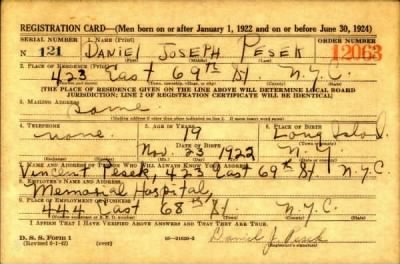 REGISTRATION CARD—(Men born on or after January 1, 1922 and on or before June 30, 1924)
SERIAL NUMBER 1. NAME (Print) ORDER NUMBER
N 121 DANIEL JOSEPH PESEK 12063
(First) (Middle) (Last)
2. PLACE OF RESIDENCE (Print)
423 East 69th St. N.Y.C.
(Number and street) (Town, township, village, or city) (County) (State)
[THE PLACE OF RESIDENCE GIVEN ON THE LINE ABOVE WILL DETERMINE LOCAL BOARD
JURISDICTION; LINE 2 OF REGISTRATION CERTIFICATE WILL BE IDENTICAL]
3. MAILING ADDRESS
Same
4. TELEPHONE 5. AGE IN YEARS 6. PLACE OF BIRTH
none 19 Long Island
DATE OF BIRTH
Nov. 23 1922 N.Y.
7. NAME AND ADDRESS OF PERSON WHO WILL ALWAYS KNOW YOUR ADDRESS
Vincent Pesek, 423 East 69th St N.Y.C.
8. EMPLOYER'S NAME AND ADDRESS
Memorial Hospital,
9. PLACE OF EMPLOYMENT OR BUSINESS
444 East 68th St. N.Y.C.
(Number and street or R. F. D. number) (Town) (County) (State)
I AFFIRM THAT I HAVE VERIFIED ABOVE ANSWERS AND THAT THEY ARE TRUE.
D. S. S. Form 1
(Revised 6-1-42) (over) Daniel J. Pesek